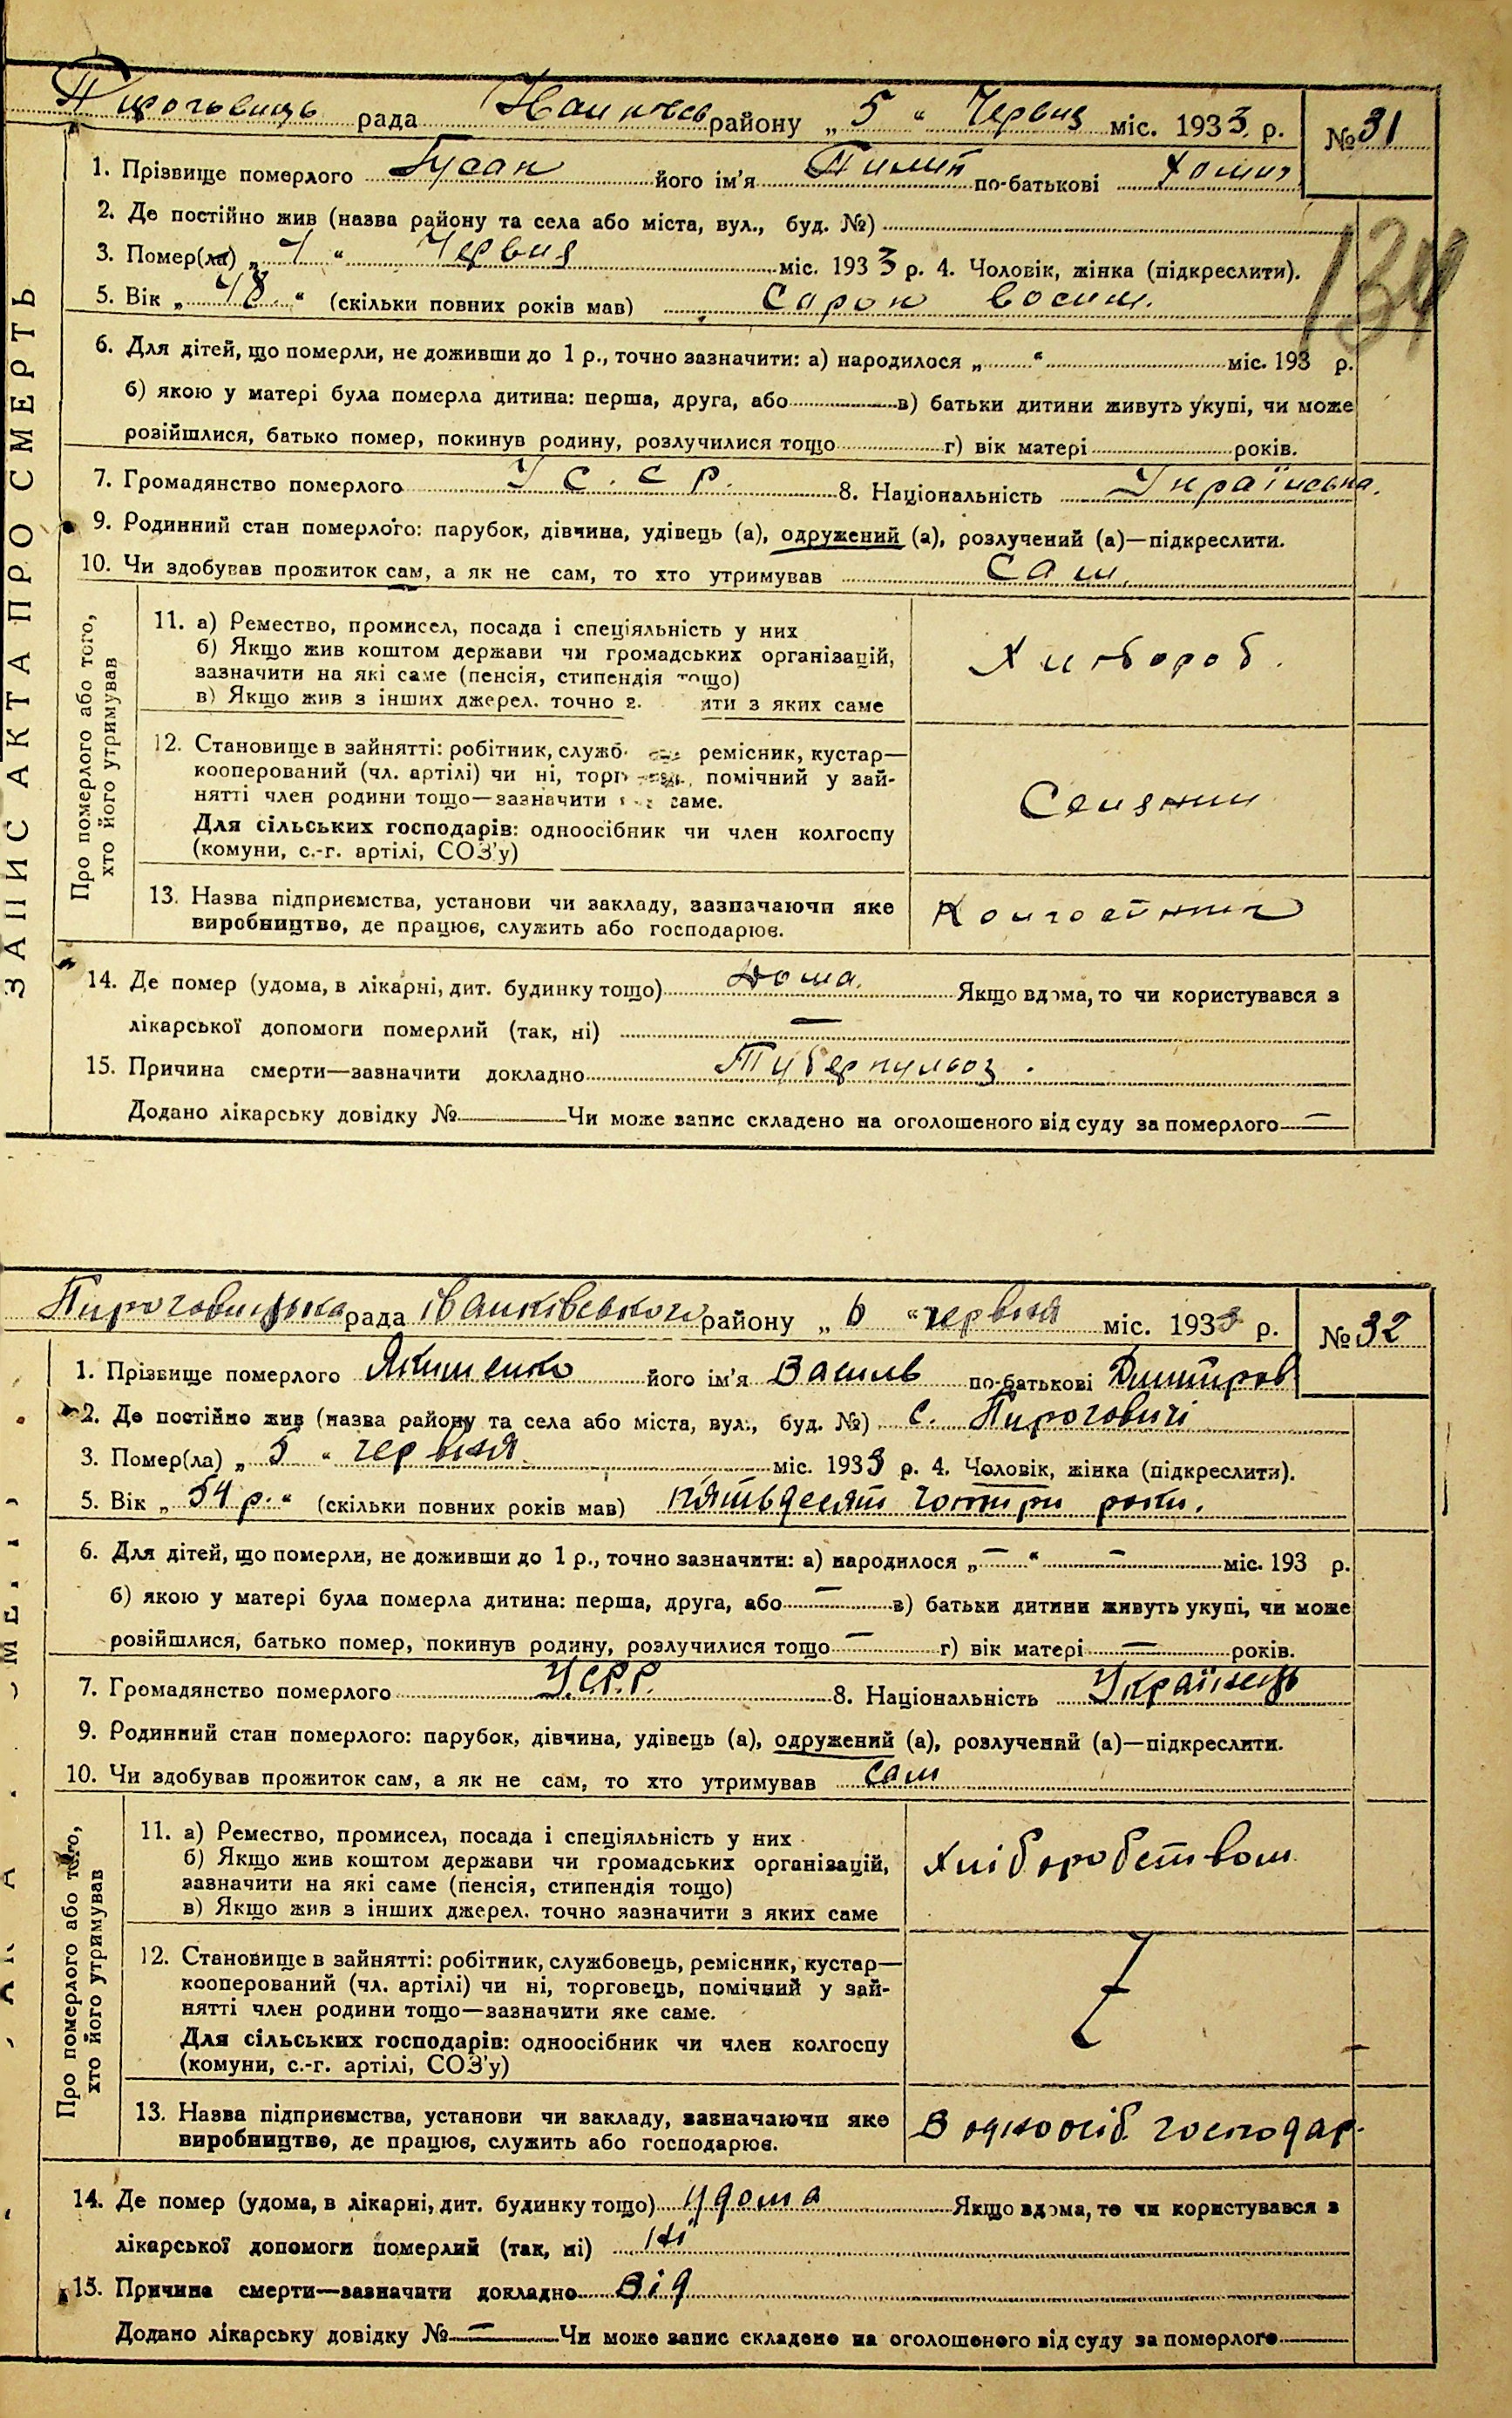 рада району „ 5 “ Червня міс. 1933 р. № 31
1. Прізвище померлого Гусак його ім'я Пилип по-батькові Хомич
2. Де постійно жив (назва району та села або міста, вул., буд. №)
134
3. Помер(ла) „ 4 “ Червня міс. 1933 р. 4. Чоловік, жінка (підкреслити).
5. Вік „ 48. “ (скільки повних років мав) Сорок восим.
6. Для дітей, що померли, не доживши до 1 р., точно зазначити: а) народилося „ “ міс. 193 р.
б) якою у матері була померла дитина: перша, друга, або в) батьки дитини живуть укупі, чи може
розійшлися, батько помер, покинув родину, розлучилися тощо г) вік матері років.
7. Громадянство померлого У С. С Р. 8. Національність Українська.
9. Родинний стан померлого: парубок, дівчина, удівець (а), одружений (а), розлучений (а)—підкреслити.
10. Чи здобував прожиток сам, а як не сам, то хто утримував сам.
ЗАПИС АКТА ПРО СМЕРТЬ
Про померлого або того,
хто його утримував
11. а) Ремество, промисел, посада і спеціяльність у них
б) Якщо жив коштом держави чи громадських організацій,
зазначити на які саме (пенсія, стипендія тощо)
в) Якщо жив з інших джерел. точно з яких саме
Хлібороб.
12. Становище в зайнятті: робітник, служб ремісник, кустар—
кооперований (чл. артілі) чи ні, торг помічний у зай-
нятті член родини тощо—зазначити саме.
Для сільських господарів: одноосібник чи член колгоспу
(комуни, с.-г. артілі, СОЗ'у)
Селянин
13. Назва підприємства, установи чи закладу, зазначаючи яке
виробництво, де працює, служить або господарює.
14. Де помер (удома, в лікарні, дит. будинку тощо) дома. Якщо вдома, то чи користувався з
лікарської допомоги померлий (так, ні) —
15. Причина смерти—зазначити докладно Туберкульоз.
Додано лікарську довідку № Чи може запис складено на оголошеного від суду за померлого —
Пироговицька рада іванківського району „ 6 “ червня міс. 1933 р. № 32
1. Прізвище померлого Якименко його ім'я Василь по-батькові Дмитров
2. Де постійно жив (назва району та села або міста, вул., буд. №) с. Пироговичі
3. Помер(ла) „ 5 “ червня міс. 1933 р. 4. Чоловік, жінка (підкреслити).
5. Вік „ 54 р. “ (скільки повних років мав) пятьдесят чотири роки.
6. Для дітей, що померли, не доживши до 1 р., точно зазначити: а) народилося „ — “ — міс. 193 р.
б) якою у матері була померла дитина: перша, друга, або — в) батьки дитини живуть укупі, чи може
розійшлися, батько помер, покинув родину, розлучилися тощо — г) вік матері — років.
7. Громадянство померлого У.С.Р.Р. 8. Національність Українець
9. Родинний стан померлого: парубок, дівчина, удівець (а), одружений (а), розлучений (а)—підкреслити.
10. Чи здобував прожиток сам, а як не сам, то хто утримував сам
Про померлого або того,
хто його утримував
11. а) Ремество, промисел, посада і спеціяльність у них
б) Якщо жив коштом держави чи громадських організацій,
зазначити на які саме (пенсія, стипендія тощо)
в) Якщо жив з інших джерел. точно зазначити з яких саме
Хліборобством
12. Становище в зайнятті: робітник, службовець, ремісник, кустар—
кооперований (чл. артілі) чи ні, торговець, помічний у зай-
нятті член родини тощо—зазначити яке саме.
Для сільських господарів: одноосібник чи член колгоспу
(комуни, с.-г. артілі, СОЗ'у)
13. Назва підприємства, установи чи закладу, зазначаючи яке
виробництво, де працює, служить або господарює.
В одноосіб. господар.
14. Де помер (удома, в лікарні, дит. будинку тощо) удома Якщо вдома, то чи користувався з
лікарської допомоги померлий (так, ні) ні
15. Причина смерти—зазначити докладно Від
Додано лікарську довідку № — Чи може запис складено на оголошеного від суду за померлого